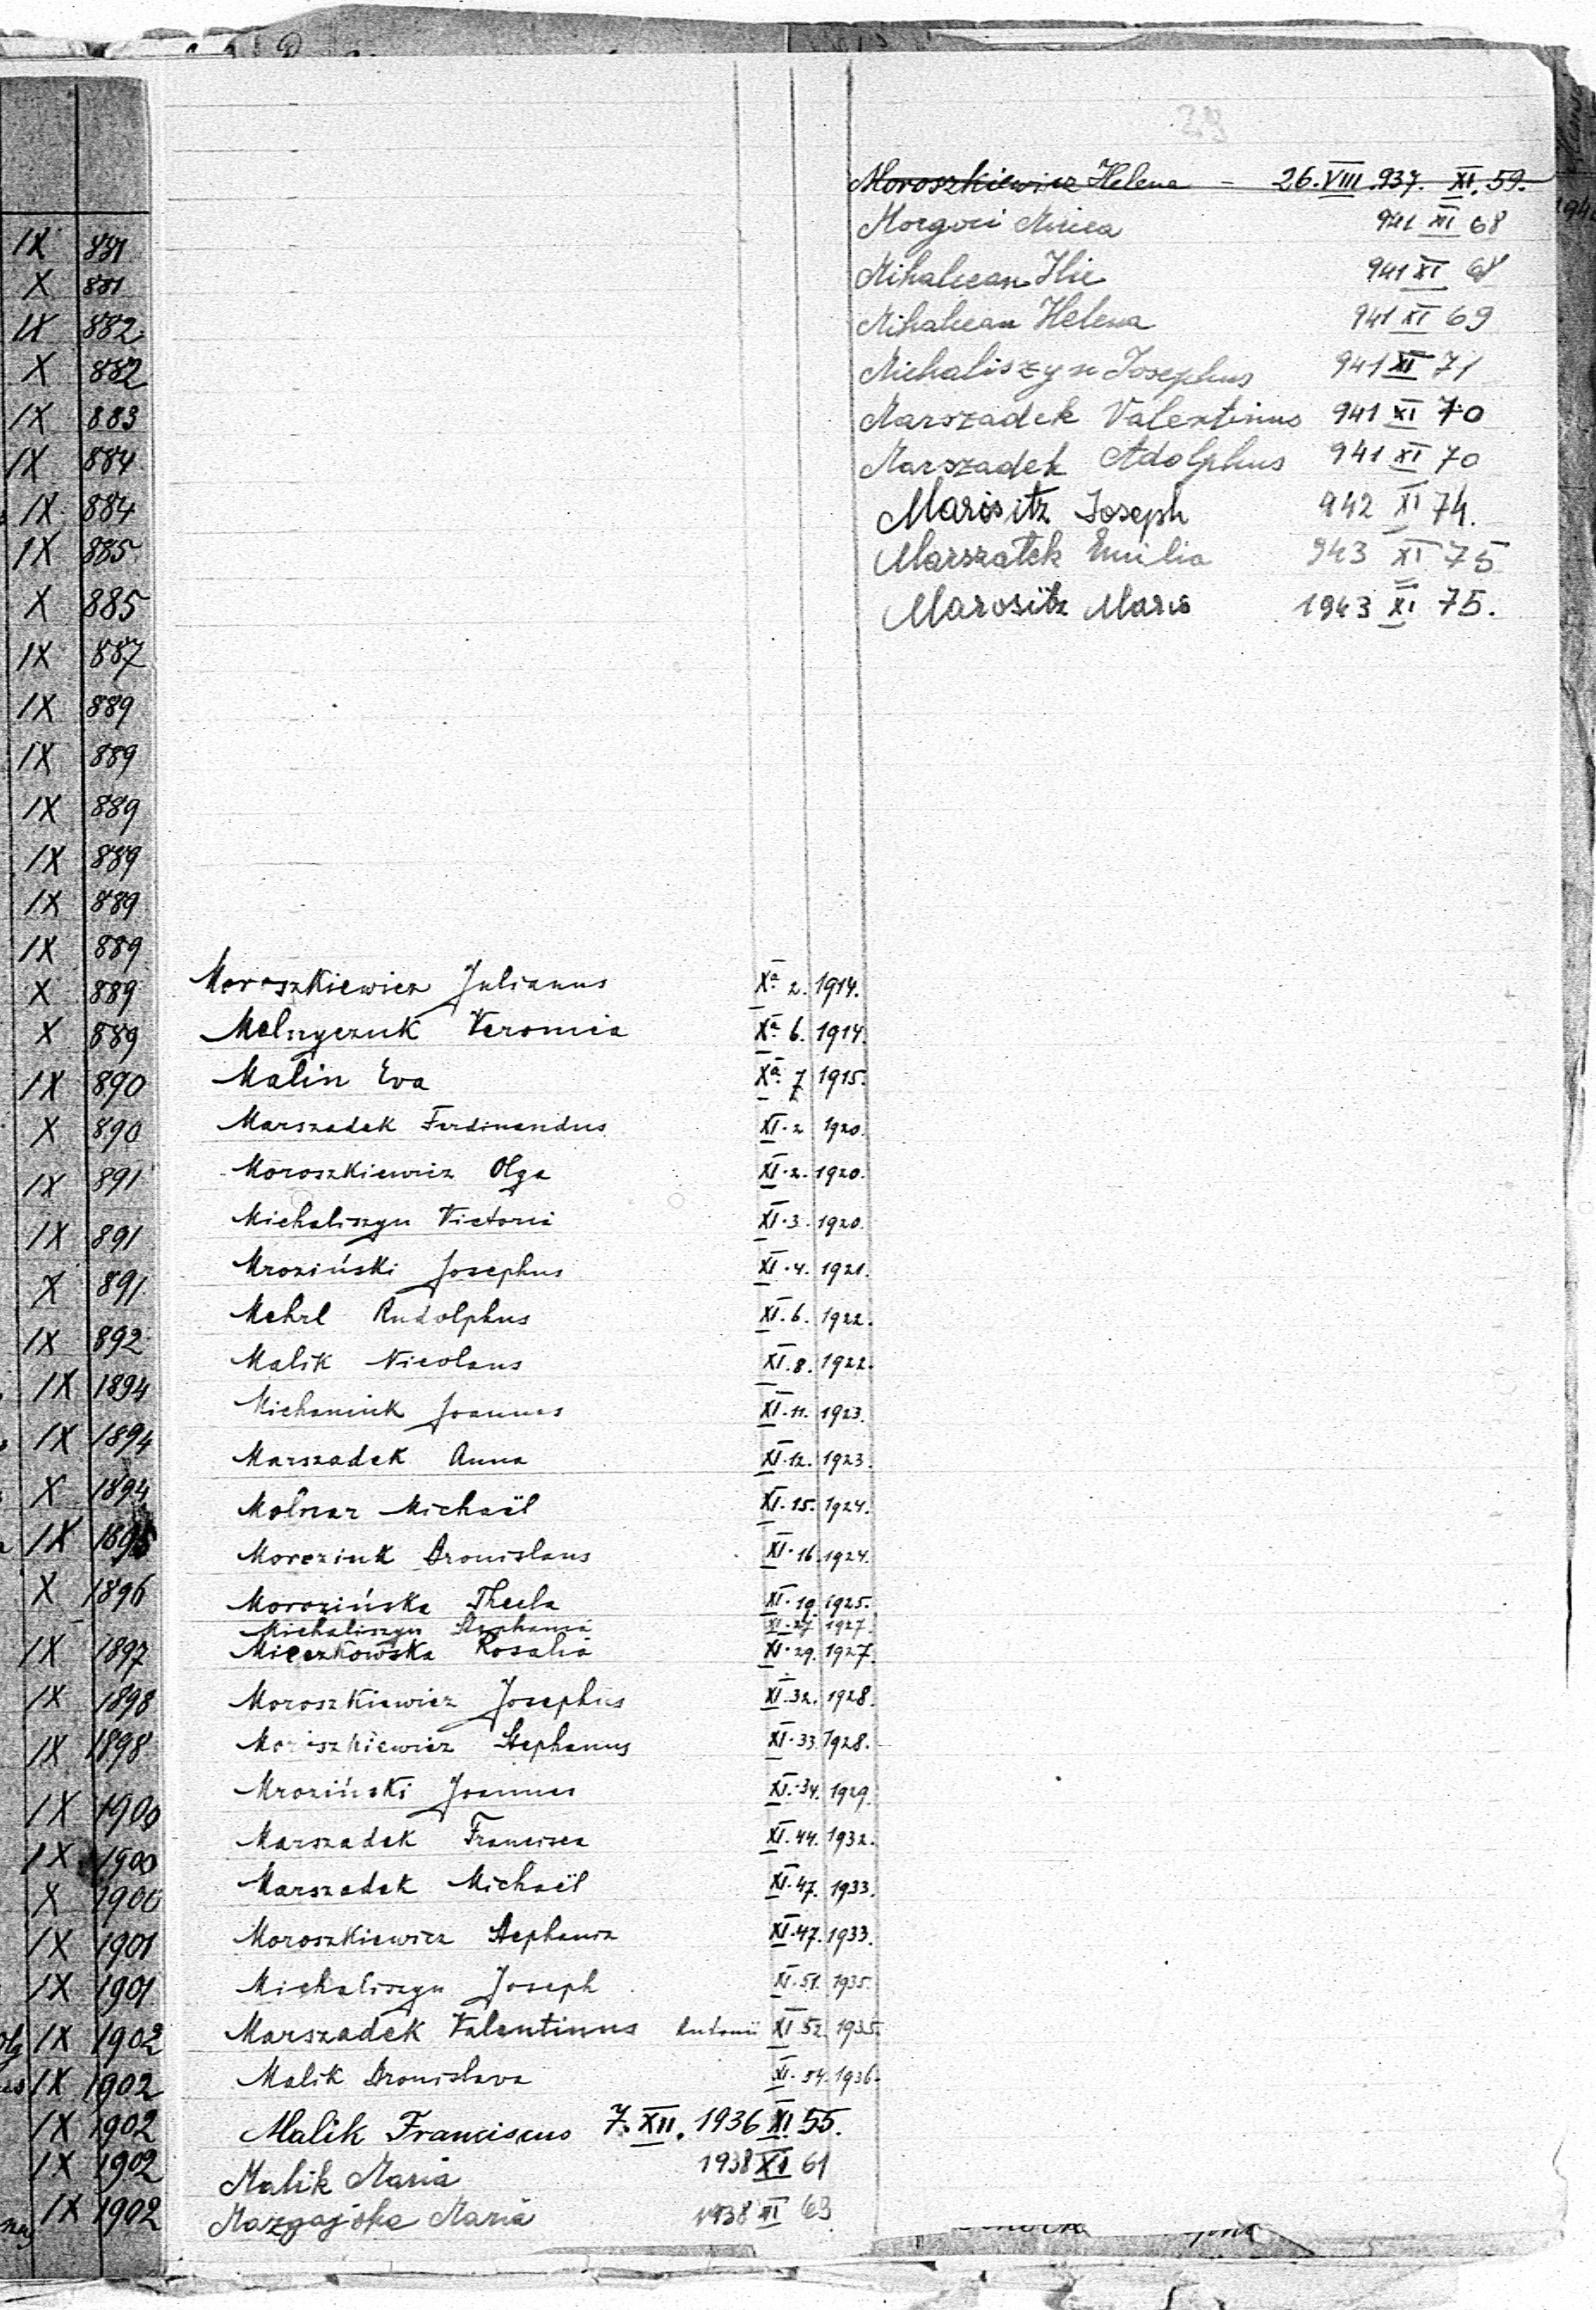 29
Moroszkiewicz Helena - 26.VIII.937. XI. 59.
Morgoci Mircea 941 XI 68
Mihalcean Ilie 941 XI 68
Mihalcean Helena 941 XI 69
Michaliszyn Josephus 941 XI 71
Marszadek Valentinus 941 XI 70
Marszadek Adolphus 941 XI 70
Marositz Joseph 942 XI 74.
Marszałek Emilia 943 XI 75
Marositz Maria 1943 XI 75.
IX 881
X 881
IX 882
X 882
IX 883
IX 884
IX 884
IX 885
X 885
IX 887
IX 889
IX 889
IX 889
IX 889
IX 889
IX 889
X 889
X 889
IX 890
X 890
IX 891
IX 891
X 891
IX 892
IX 1894
IX 1894
X 1894
IX 1895
X 1896
IX 1897
IX 1898
IX 1898
IX 1900
IX 1900
X 1900
IX 1901
IX 1901
IX 1902
IX 1902
IX 1902
IX 1902
IX 1902
Moroszkiewicz Julianus Xa 2. 1914.
Melnyczuk Veronia Xa 6. 1914.
Malin Eva Xa 7 1915.
Marszadek Ferdinandus XI. 2 1920.
Moroszkiewicz Olga XI. 2. 1920.
Michaliszyn Victoria XI. 3. 1920.
Mroziński Josephus XI. 4. 1921.
Mehrl Rudolphus XI. 6. 1922.
Malik Nicolaus XI. 8. 1922.
Michaniuk Joannes XI. 11. 1923.
Marszadek Anna XI. 12. 1923.
Molnar Michaël XI. 15. 1924.
Morcziuk Bronislaus XI. 16 1924.
Morozińska Thecla XI. 19. 1925.
Michaliszyn Stephania XI. 27 1927.
Mieczkowska Rosalia XI. 29. 1927.
Moroszkiewicz Josephus XI. 32. 1928.
Moroszkiewicz Stephanus XI. 33. 1928.
Mroziński Joannes XI. 34. 1929.
Marszadek Francisca XI. 44. 1932.
Marszadek Michaël XI. 47. 1933.
Moroszkiewicz Stephania XI. 47. 1933.
Michaliszyn Joseph XI. 51. 1935.
Marszadek Valentinus Antonii XI 52 1935.
Malik Bronislava XI. 54. 1936.
Malik Franciscus 7. XII. 1936 XI. 55.
Malik Maria 1938 XI 61
Mazgajska Maria 1938 XI 63